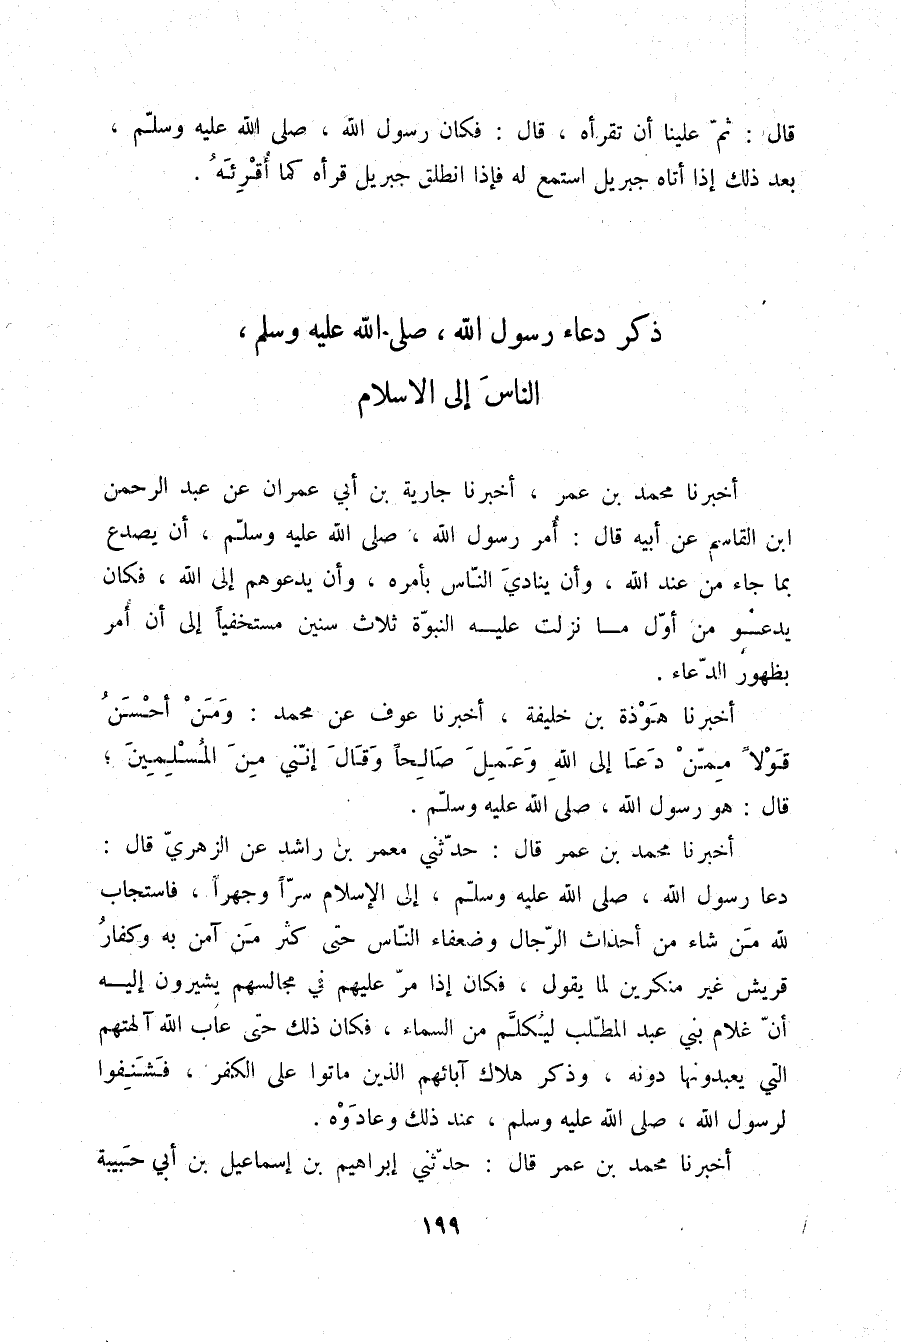 قال : ثمّ علينا أن تقرأه ، قال : فكان رسول الله ، صلى الله عليه وسلّم ،
بعد ذلك إذا أتاه جبريل استمع له فإذا انطلق جبريل قرأه كما أُقْرِئَهُ .
ذكر دعاء رسول الله ، صلى الله عليه وسلم ،
الناسَ إلى الاسلام
أخبرنا محمد بن عمر ، أخبرنا جارية بن أبي عمران عن عبد الرحمن
ابن القاسم عن أبيه قال : أُمر رسول الله ، صلى الله عليه وسلّم ، أن يصدع
بما جاء من عند الله ، وأن يناديَ النّاس بأمره ، وأن يدعوهم إلى الله ، فكان
يدعـْو من أوّل مـا نزلت عليـه النبوّة ثلاث سنين مستخفياً إلى أن أُمر
بظهور الدّعاء .
أخبرنا هَوْذة بن خليفة ، أخبرنا عوف عن محمد : وَمَنْ أحْسَنُ
قَوْلاً مِمّنْ دَعَا إلى اللهِ وَعَمِلَ صَالِحاً وَقَالَ إنّني مِنَ المُسْلِمِينَ ؛
قال : هو رسول الله ، صلى الله عليه وسلّم .
أخبرنا محمد بن عمر قال : حدّثني معمر بن راشد عن الزهريّ قال :
دعا رسول الله ، صلى الله عليه وسلّم ، إلى الإسلام سرّاً وجهراً ، فاستجاب
لله مَن شاء من أحداث الرّجال وضعفاء النّاس حتى كثر مَن آمن به وكفارُ
قريش غير منكرين لما يقول ، فكان إذا مرّ عليهم في مجالسهم يشيرون إليـه
أنّ غلام بني عبد المطّلب ليُكلَّم من السماء ، فكان ذلك حتّى عاب الله آلهتهم
التي يعبدونها دونه ، وذكر هلاك آبائهم الذين ماتوا على الكفر ، فَشَنِفوا
لرسول الله ، صلى الله عليه وسلم ، عند ذلك وعادَوْه .
أخبرنا محمد بن عمر قال : حدّثني إبراهيم بن إسماعيل بن أبي حَبيبة
١٩٩